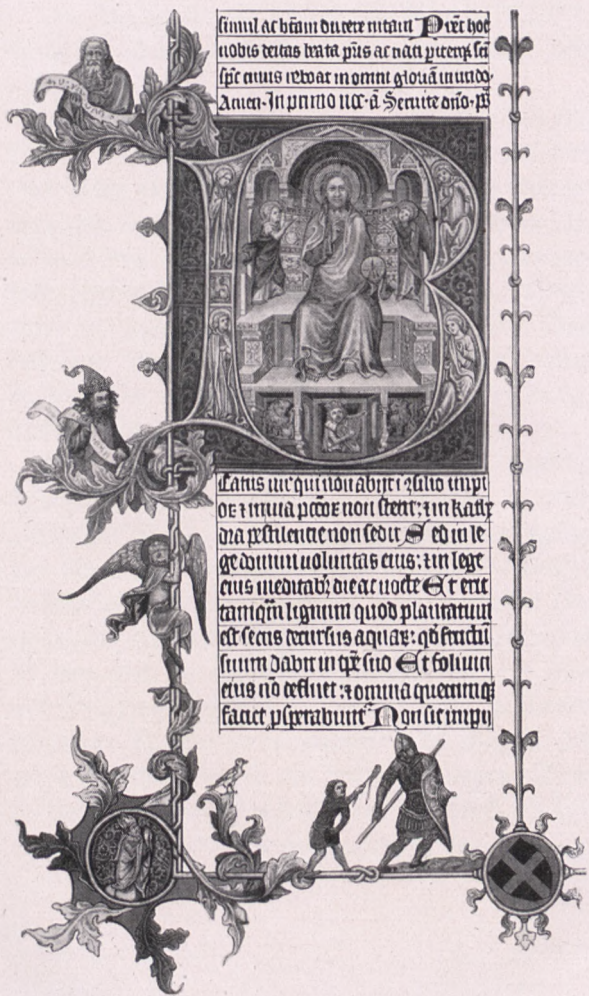 simul ac bt̄am ducere mitam Pręt hoc
uobis deitas brata pr̄is ac nati pitenqȝ sc̄i
sp̄c cuius reboat in omni gloīa in undo
Amen. In primo noc. ā Seruite dn̄o. ps̄
B
eatus uir qui non abijt ī ↄsilio impi
oꝝ ⁊ in uia pctoꝝ non stetit: ⁊ in kathe
dra pestilentie non sedit Sed in le
ge domini uoluntas eius: ⁊ in lege
eius meditabꝫ die ac nocte Et erit
tamqm̄ lignum quod plantatum
est secus decursus aquaꝝ: qd̄ fructū
suum dabit in tpr̄e suo Et folium
eius nō defluet: ⁊ omnia quecumqꝫ
faciet ꝓsperabunt̄ Non sic impij